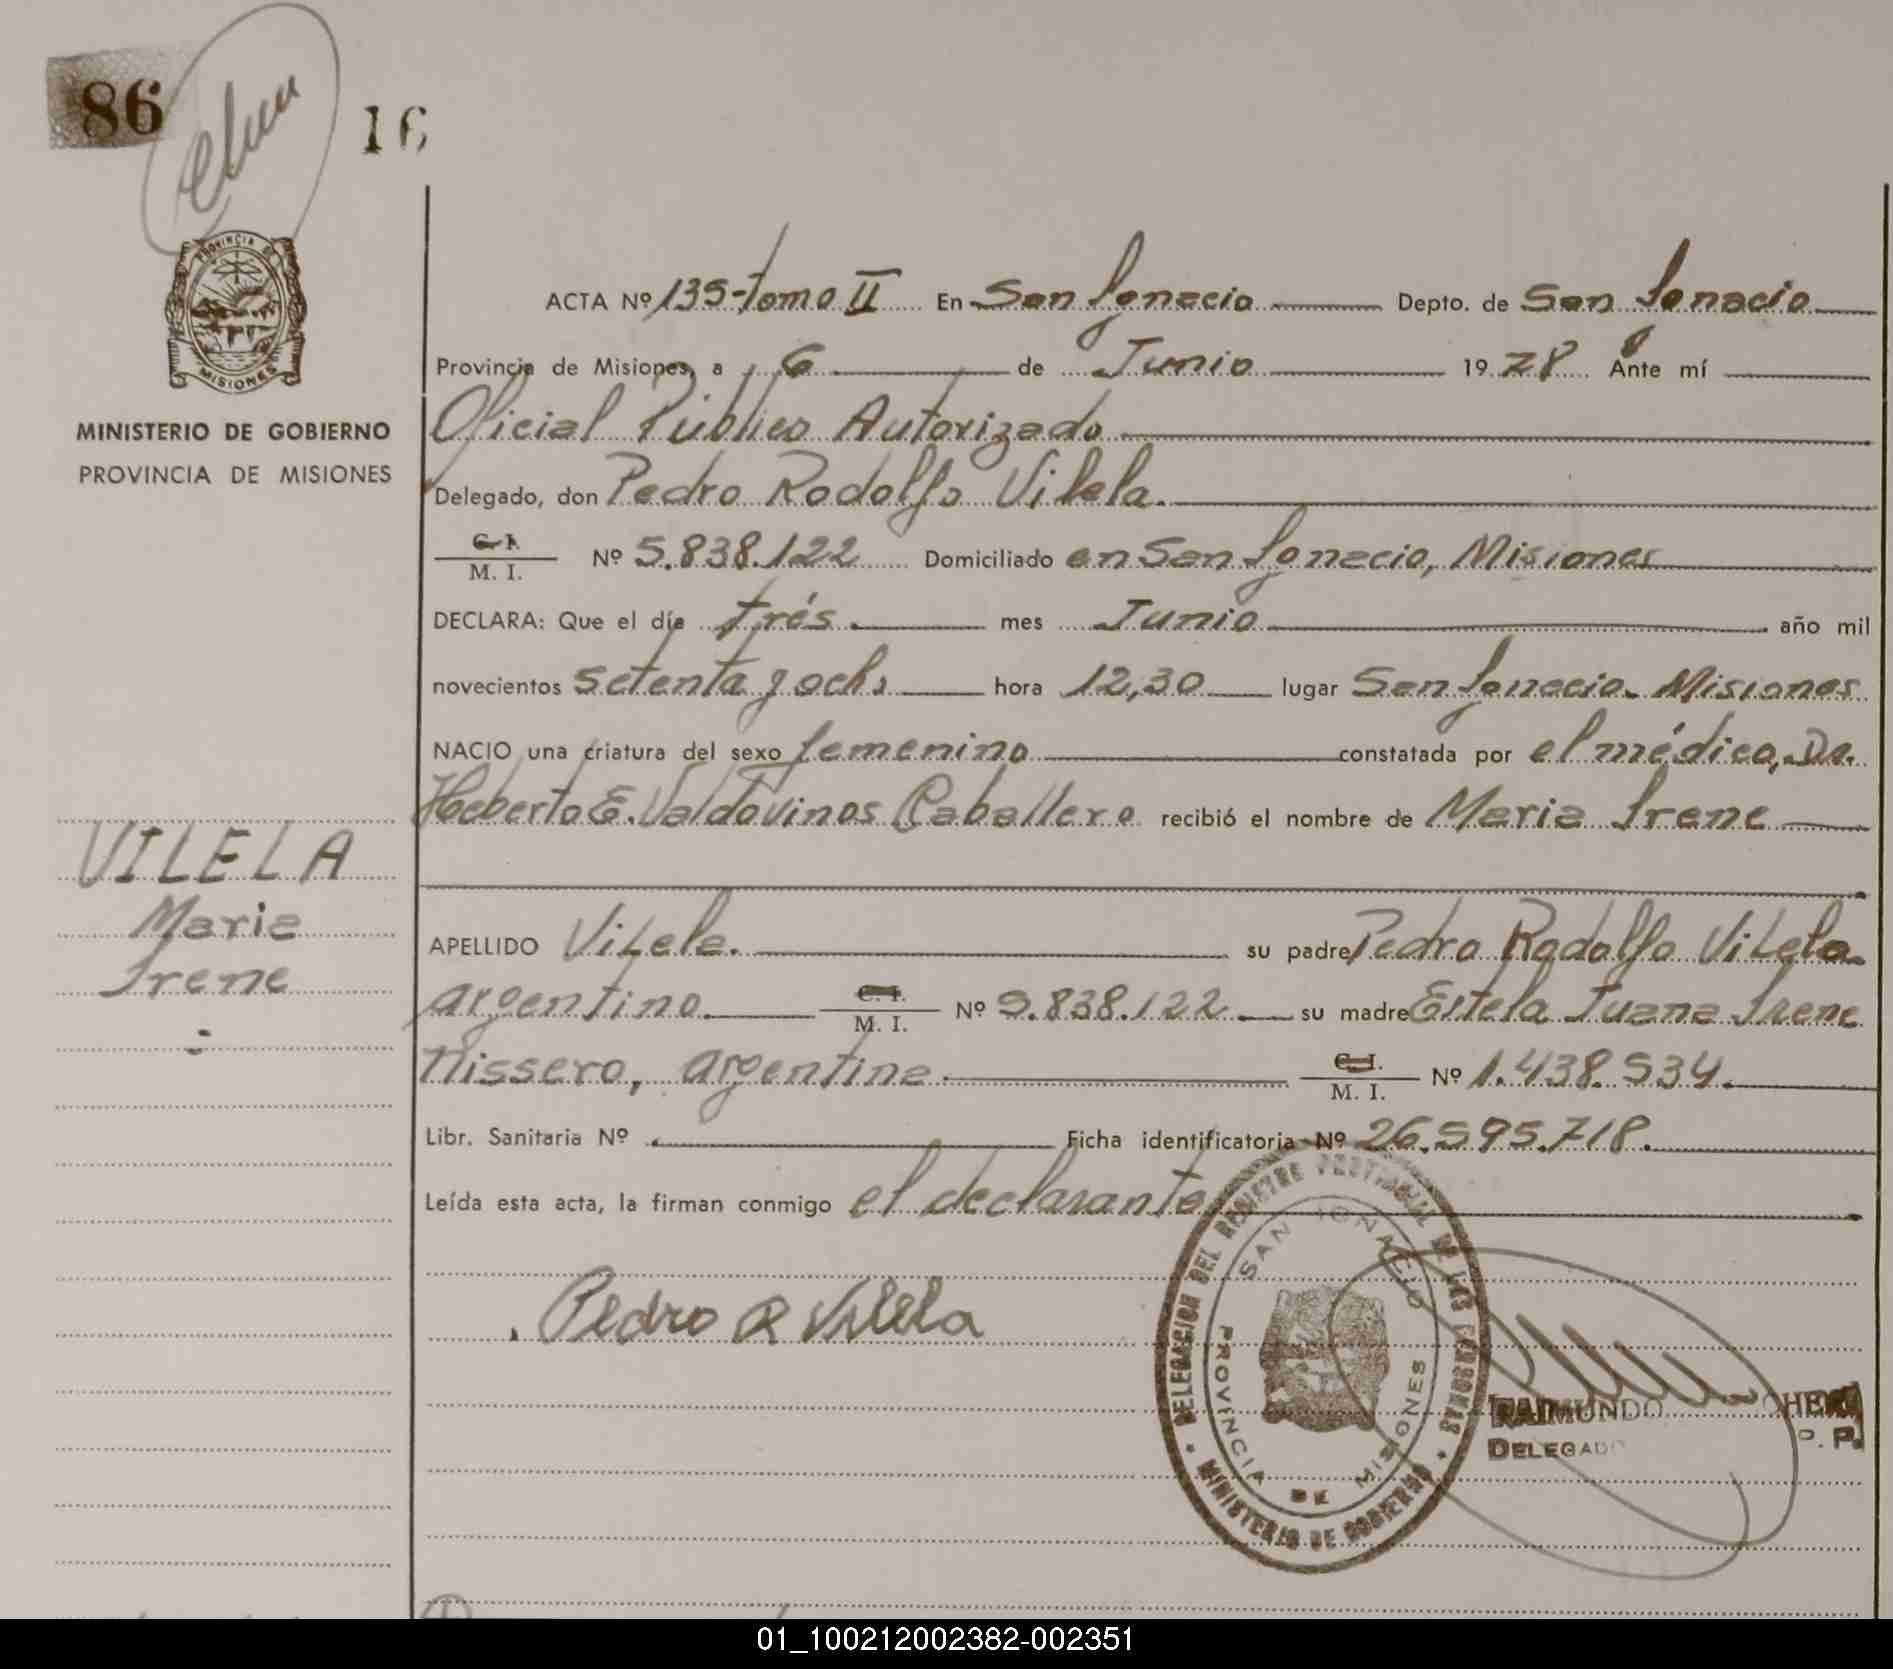 86
16
PROVINCIA DE
MISIONES
MINISTERIO DE GOBIERNO
PROVINCIA DE MISIONES
ACTA Nº 135-tomo II En San Ignacio Depto. de San Ignacio
Provincia de Misiones, a 6 de Junio 1978 Ante mí
Oficial Público Autorizado
Delegado, don Pedro Rodolfo Vilela.
C. I.
M. I.
Nº 5.838.122 Domiciliado en San Ignacio, Misiones
DECLARA: Que el día trés. mes Junio año mil
novecientos setenta y ocho hora 12,30 lugar San Ignacio. Misiones
NACIO una criatura del sexo femenino constatada por el médico, Dr.
Heberto E. Valdovinos Caballero recibió el nombre de Maria Irene
VILELA
Maria
Irene
APELLIDO Vilela. su padre Pedro Rodolfo Vilela.
argentino. C. I.
M. I.
Nº 5.838.122. su madre Estela Juana Irene
Nissero, argentina C. I.
M. I.
Nº 1.438.534.
Libr. Sanitaria Nº Ficha identificatoria Nº 26.595.718.
Leída esta acta, la firman conmigo el declarante
Pedro R Vilela
DELEGACION DEL REGISTRO PROVINCIAL DE LAS PERSONAS
SAN IGNACIO
PROVINCIA DE MISIONES
MINISTERIO DE GOBIERNO
RAIMUNDO
DELEGADO
01_100212002382-002351